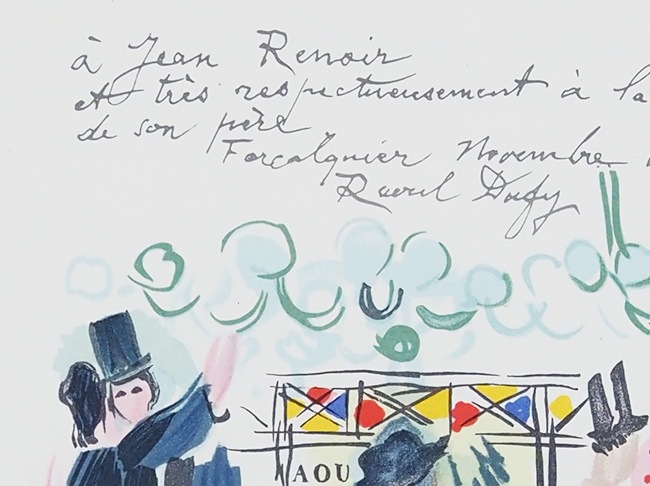 à Jean Renoir
et très respectueusement à la
de son père
Forcalquier Novembre
Raoul Dufy
AOU